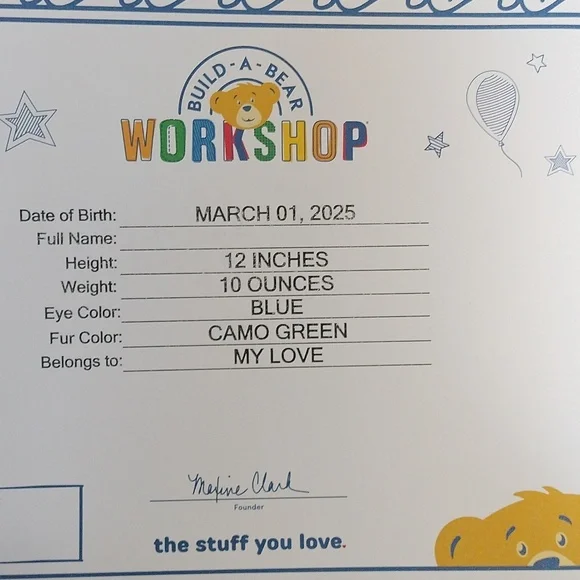 BUILD-A-BEAR
WORKSHOP
Date of Birth: MARCH 01, 2025
Full Name:
Height: 12 INCHES
Weight: 10 OUNCES
Eye Color: BLUE
Fur Color: CAMO GREEN
Belongs to: MY LOVE
Maxine Clark
Founder
the stuff you love.